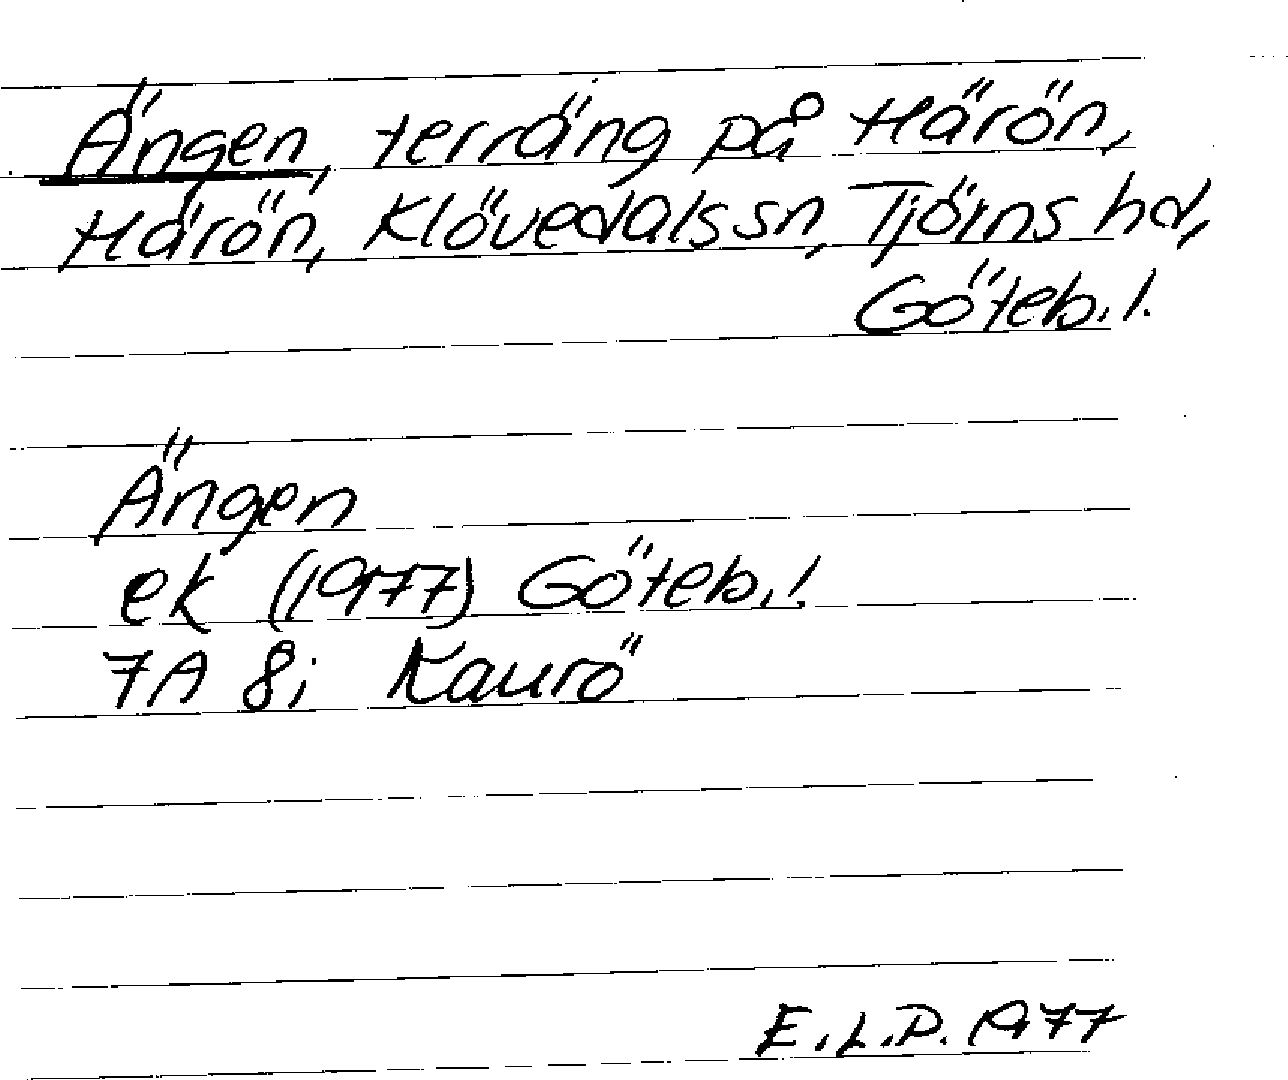 Ängen, terräng på Härön,
Härön, Klövedals sn, Tjörns hd,
Göteb. l.
Ängen
ek (1977) Göteb. l.
7A 8i Kaurö
E.L.P. 1977